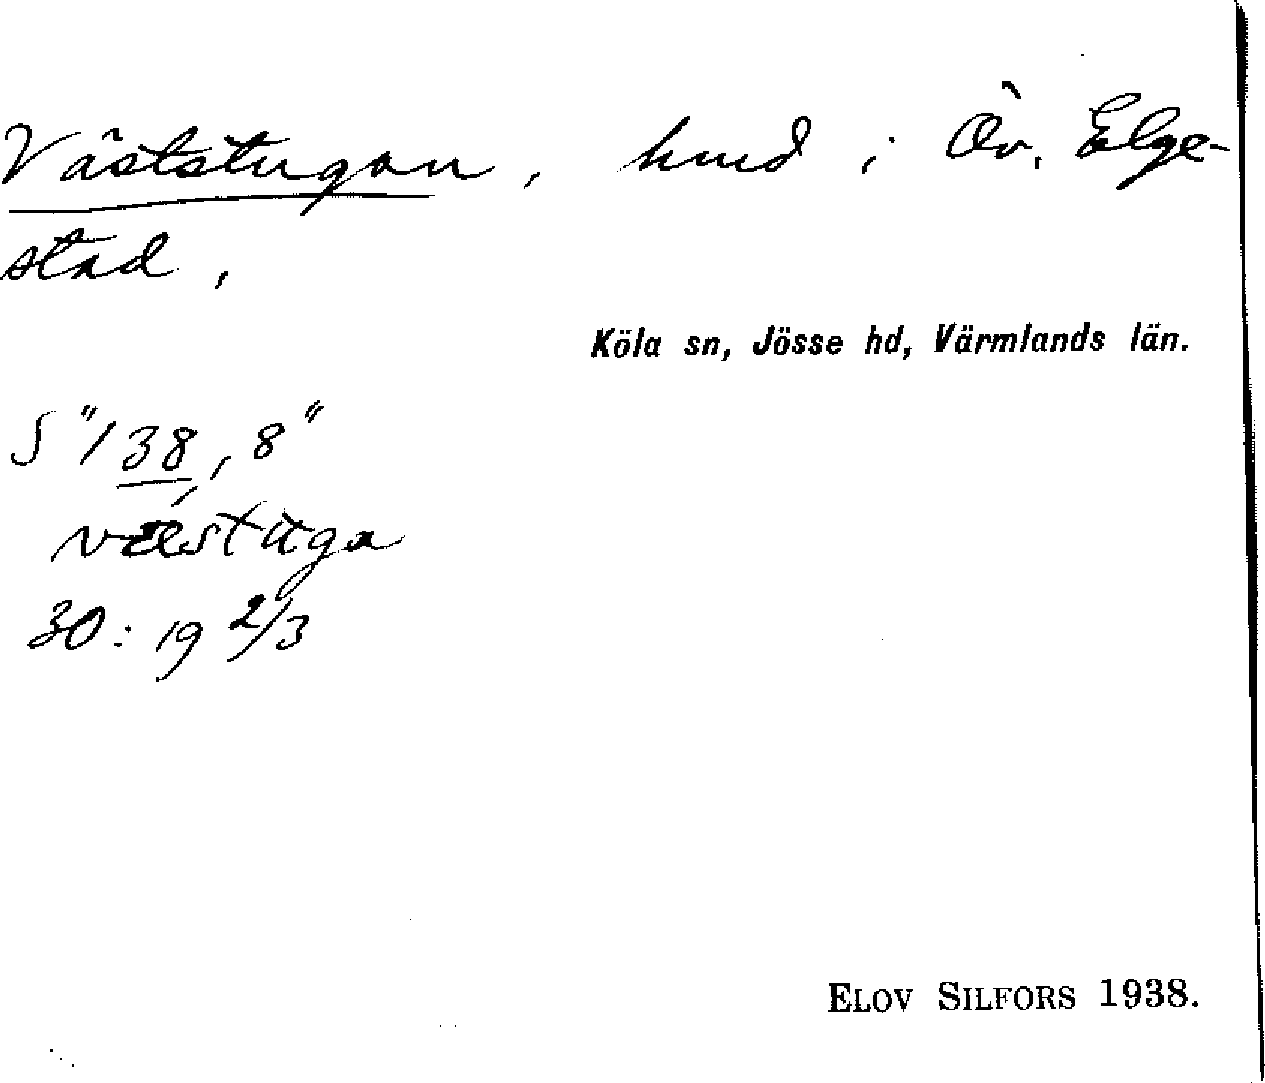 Väststugan, hmd i Öv. Elge-
stad,
Köla sn, Jösse hd, Värmlands län.
S "/38, 8"
væ̀stùga
30: 19 2/3
ELOV SILFORS 1938.